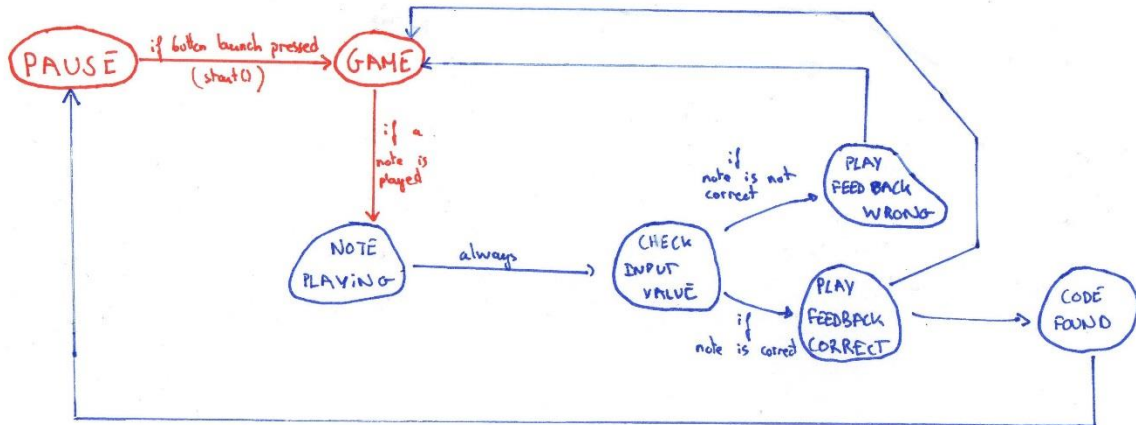 PAUSE
if button launch pressed
(start())
GAME
if a
note is
played
NOTE
PLAYING
always
CHECK
INPUT
VALUE
if
note is not
correct
PLAY
FEEDBACK
WRONG
if
note is correct
PLAY
FEEDBACK
CORRECT
CODE
FOUND